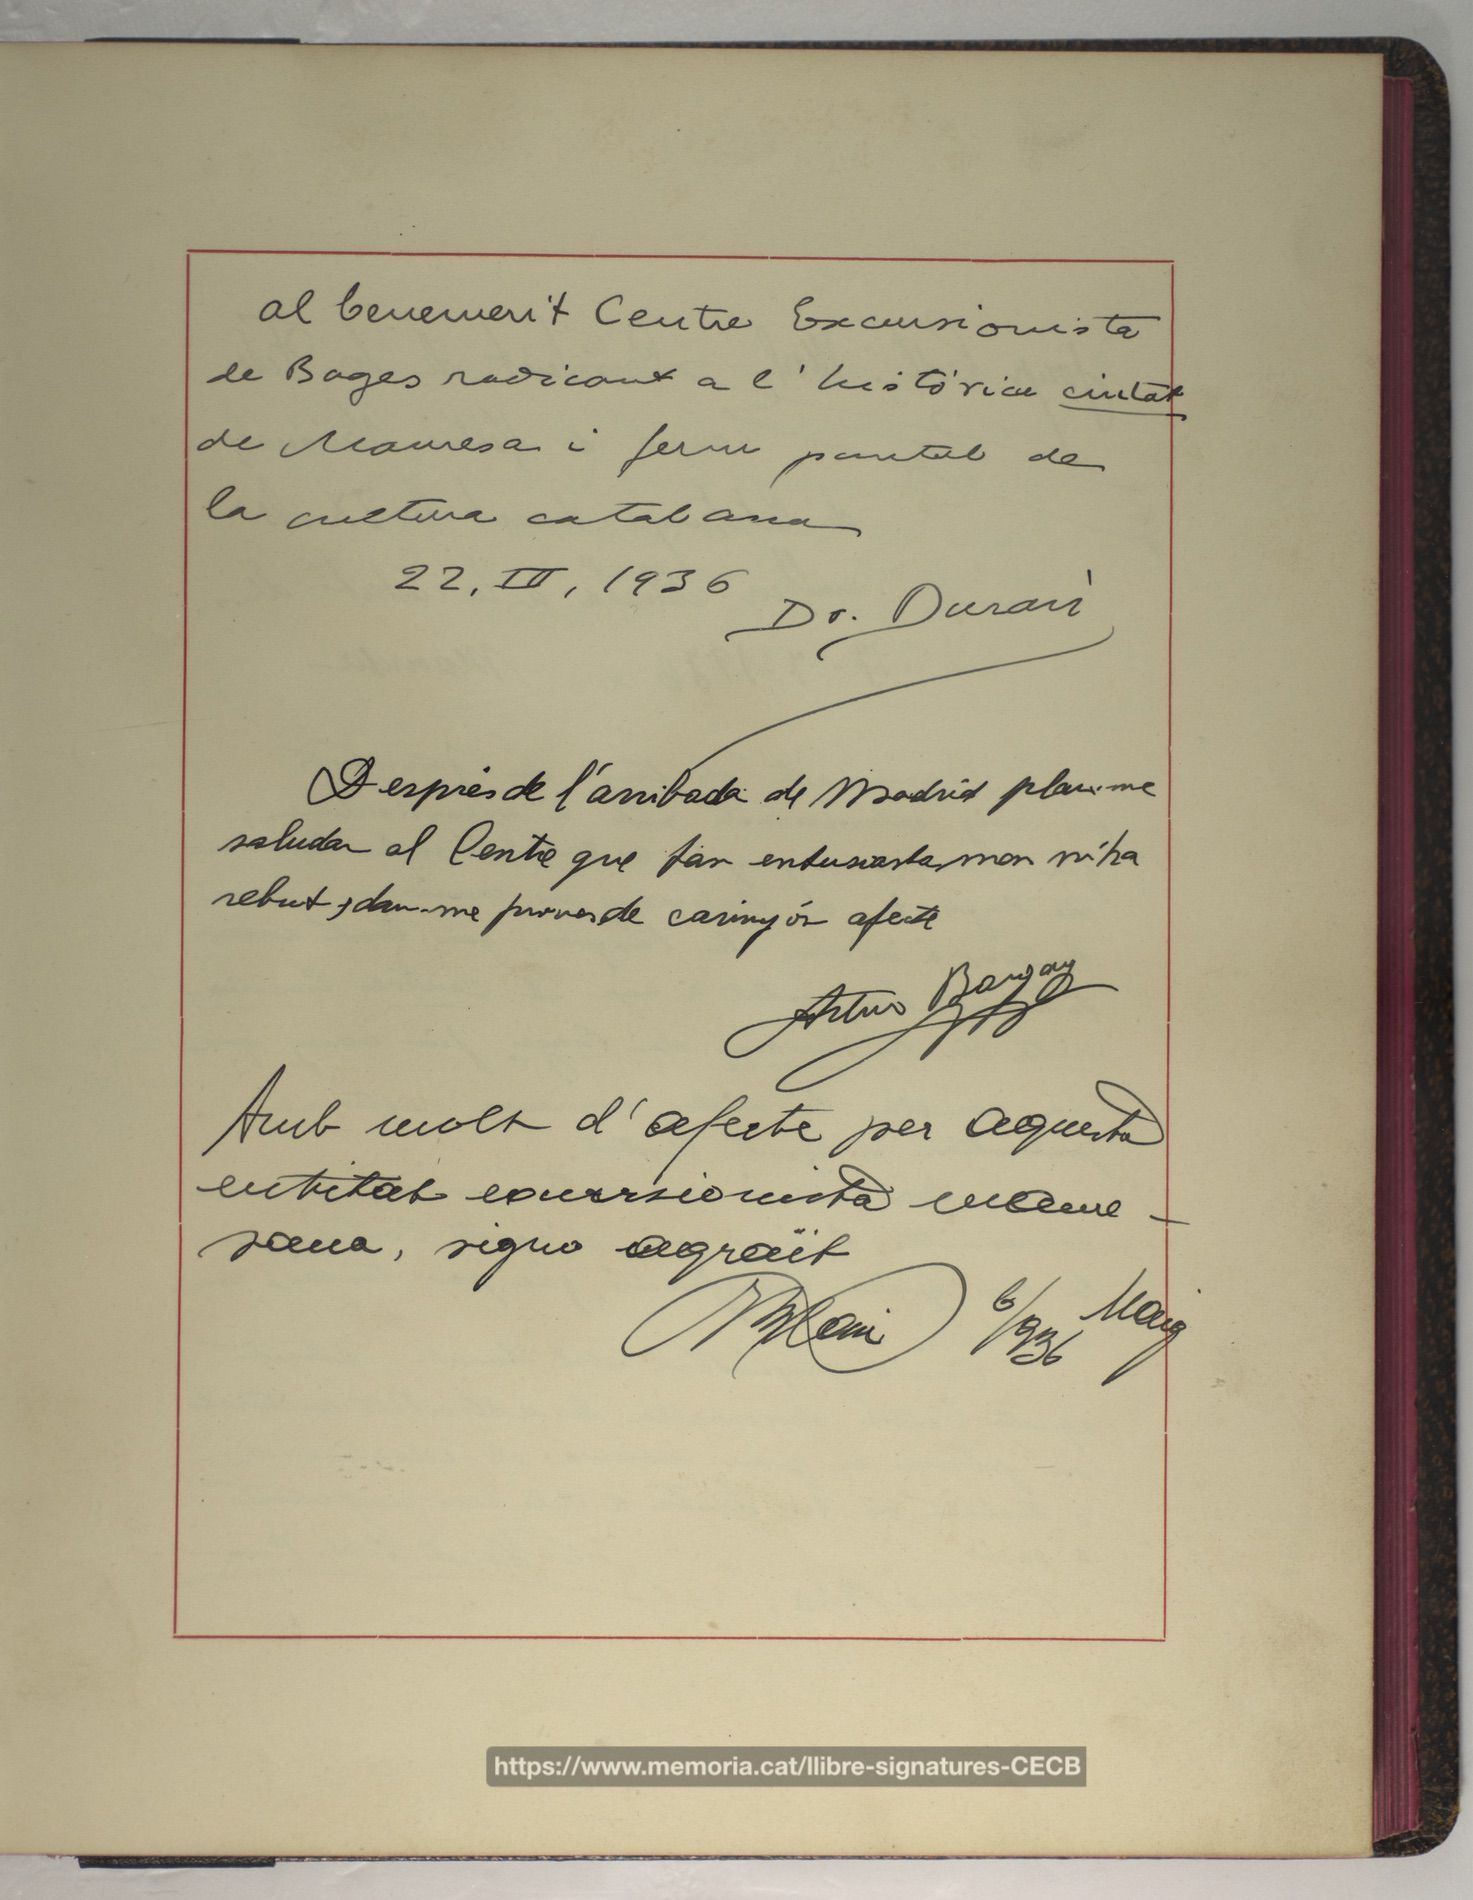 al benemerit Centre Excursionista
de Bages radicant a l'històrica ciutat
de Manresa i ferm puntal de
la cultura catalana
22, III, 1936
Dr. Duran
Desprès de l'arribada de Madrid plau-me
saludar al Centre que tan entusiastamen m'ha
rebut, dan-me proves de carinyós afecte
Artur
Amb molt d'afecte per aquesta
entitat excursionista manre-
sana, signo agraït
6/936 Maig
https://www.memoria.cat/llibre-signatures-CECB